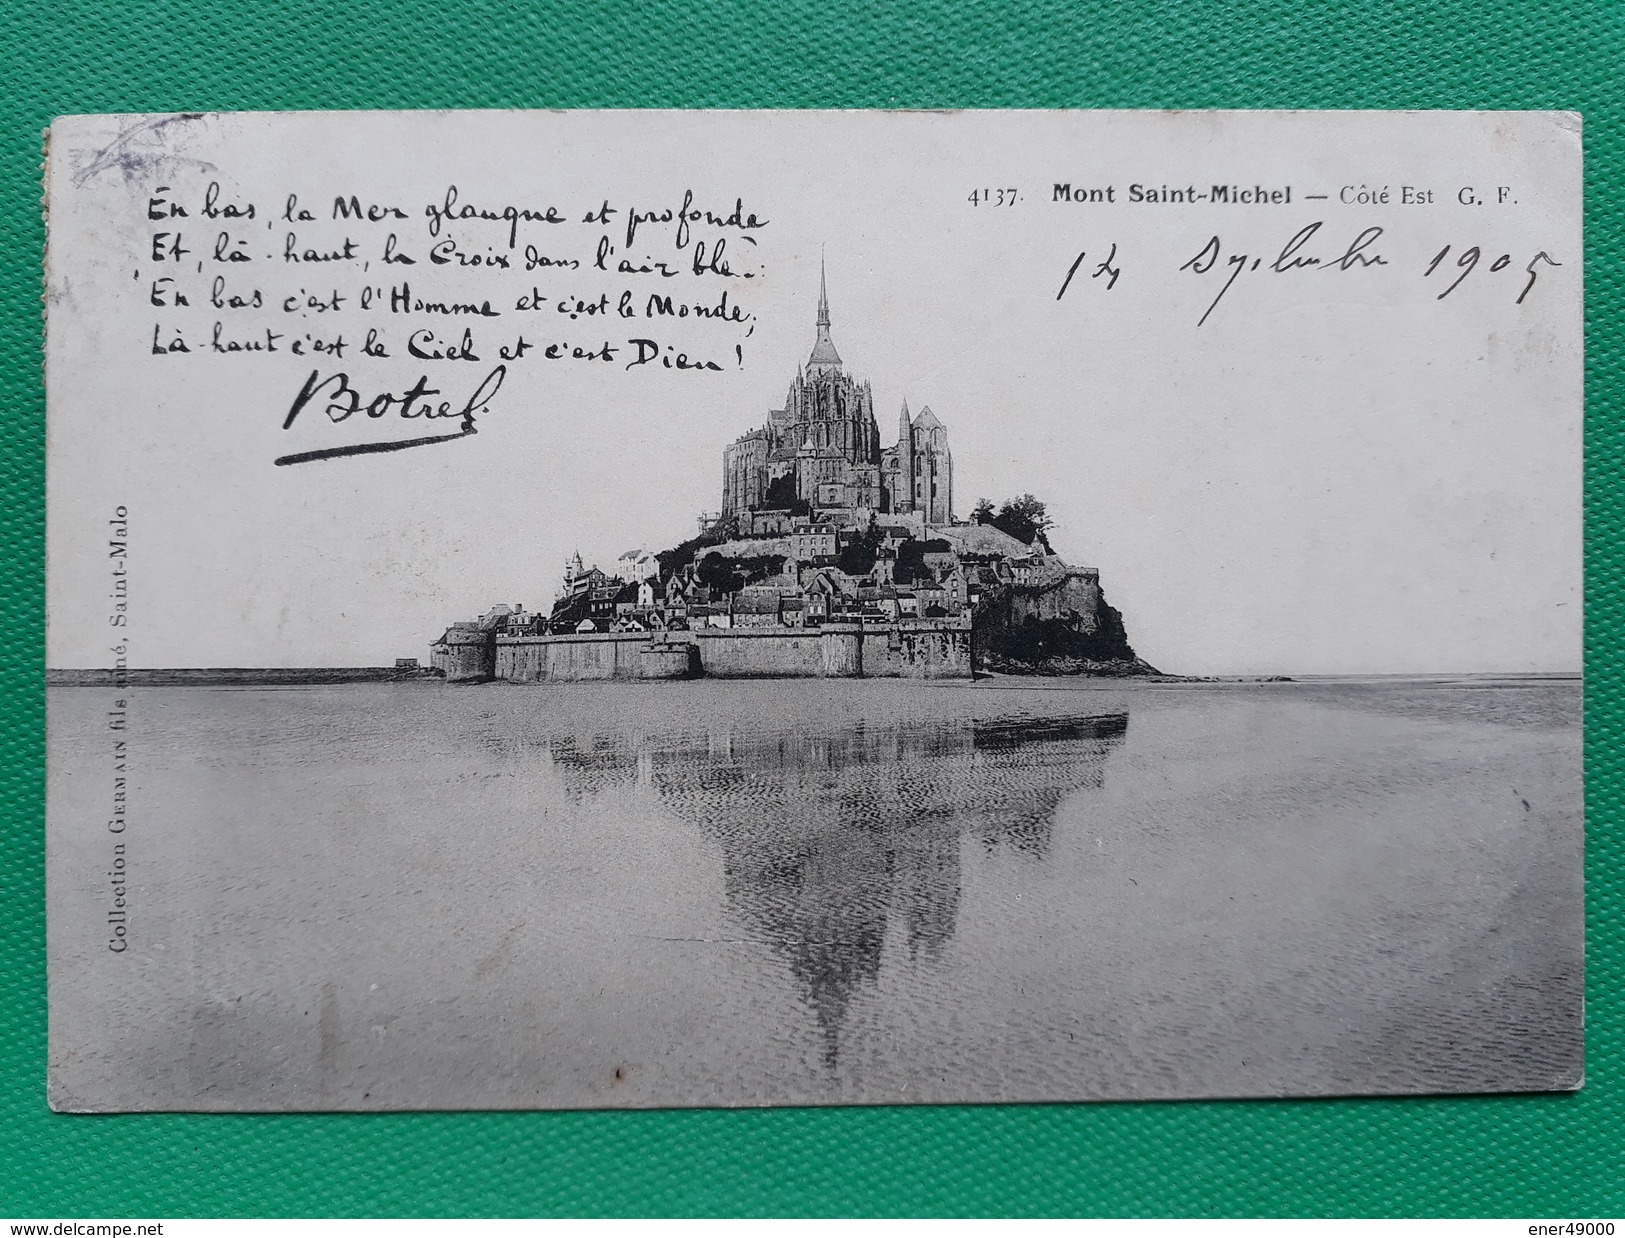 En bas, la Mer glauque et profonde
Et, là-haut, la Croix dans l'air bleu:
En bas c'est l'Homme et c'est le Monde;
Là-haut c'est le Ciel et c'est Dieu!
Botrel.
4137. Mont Saint-Michel — Côté Est G. F.
14 Septembre 1905
Collection GERMAIN fils aîné, Saint-Malo
www.delcampe.net
ener49000